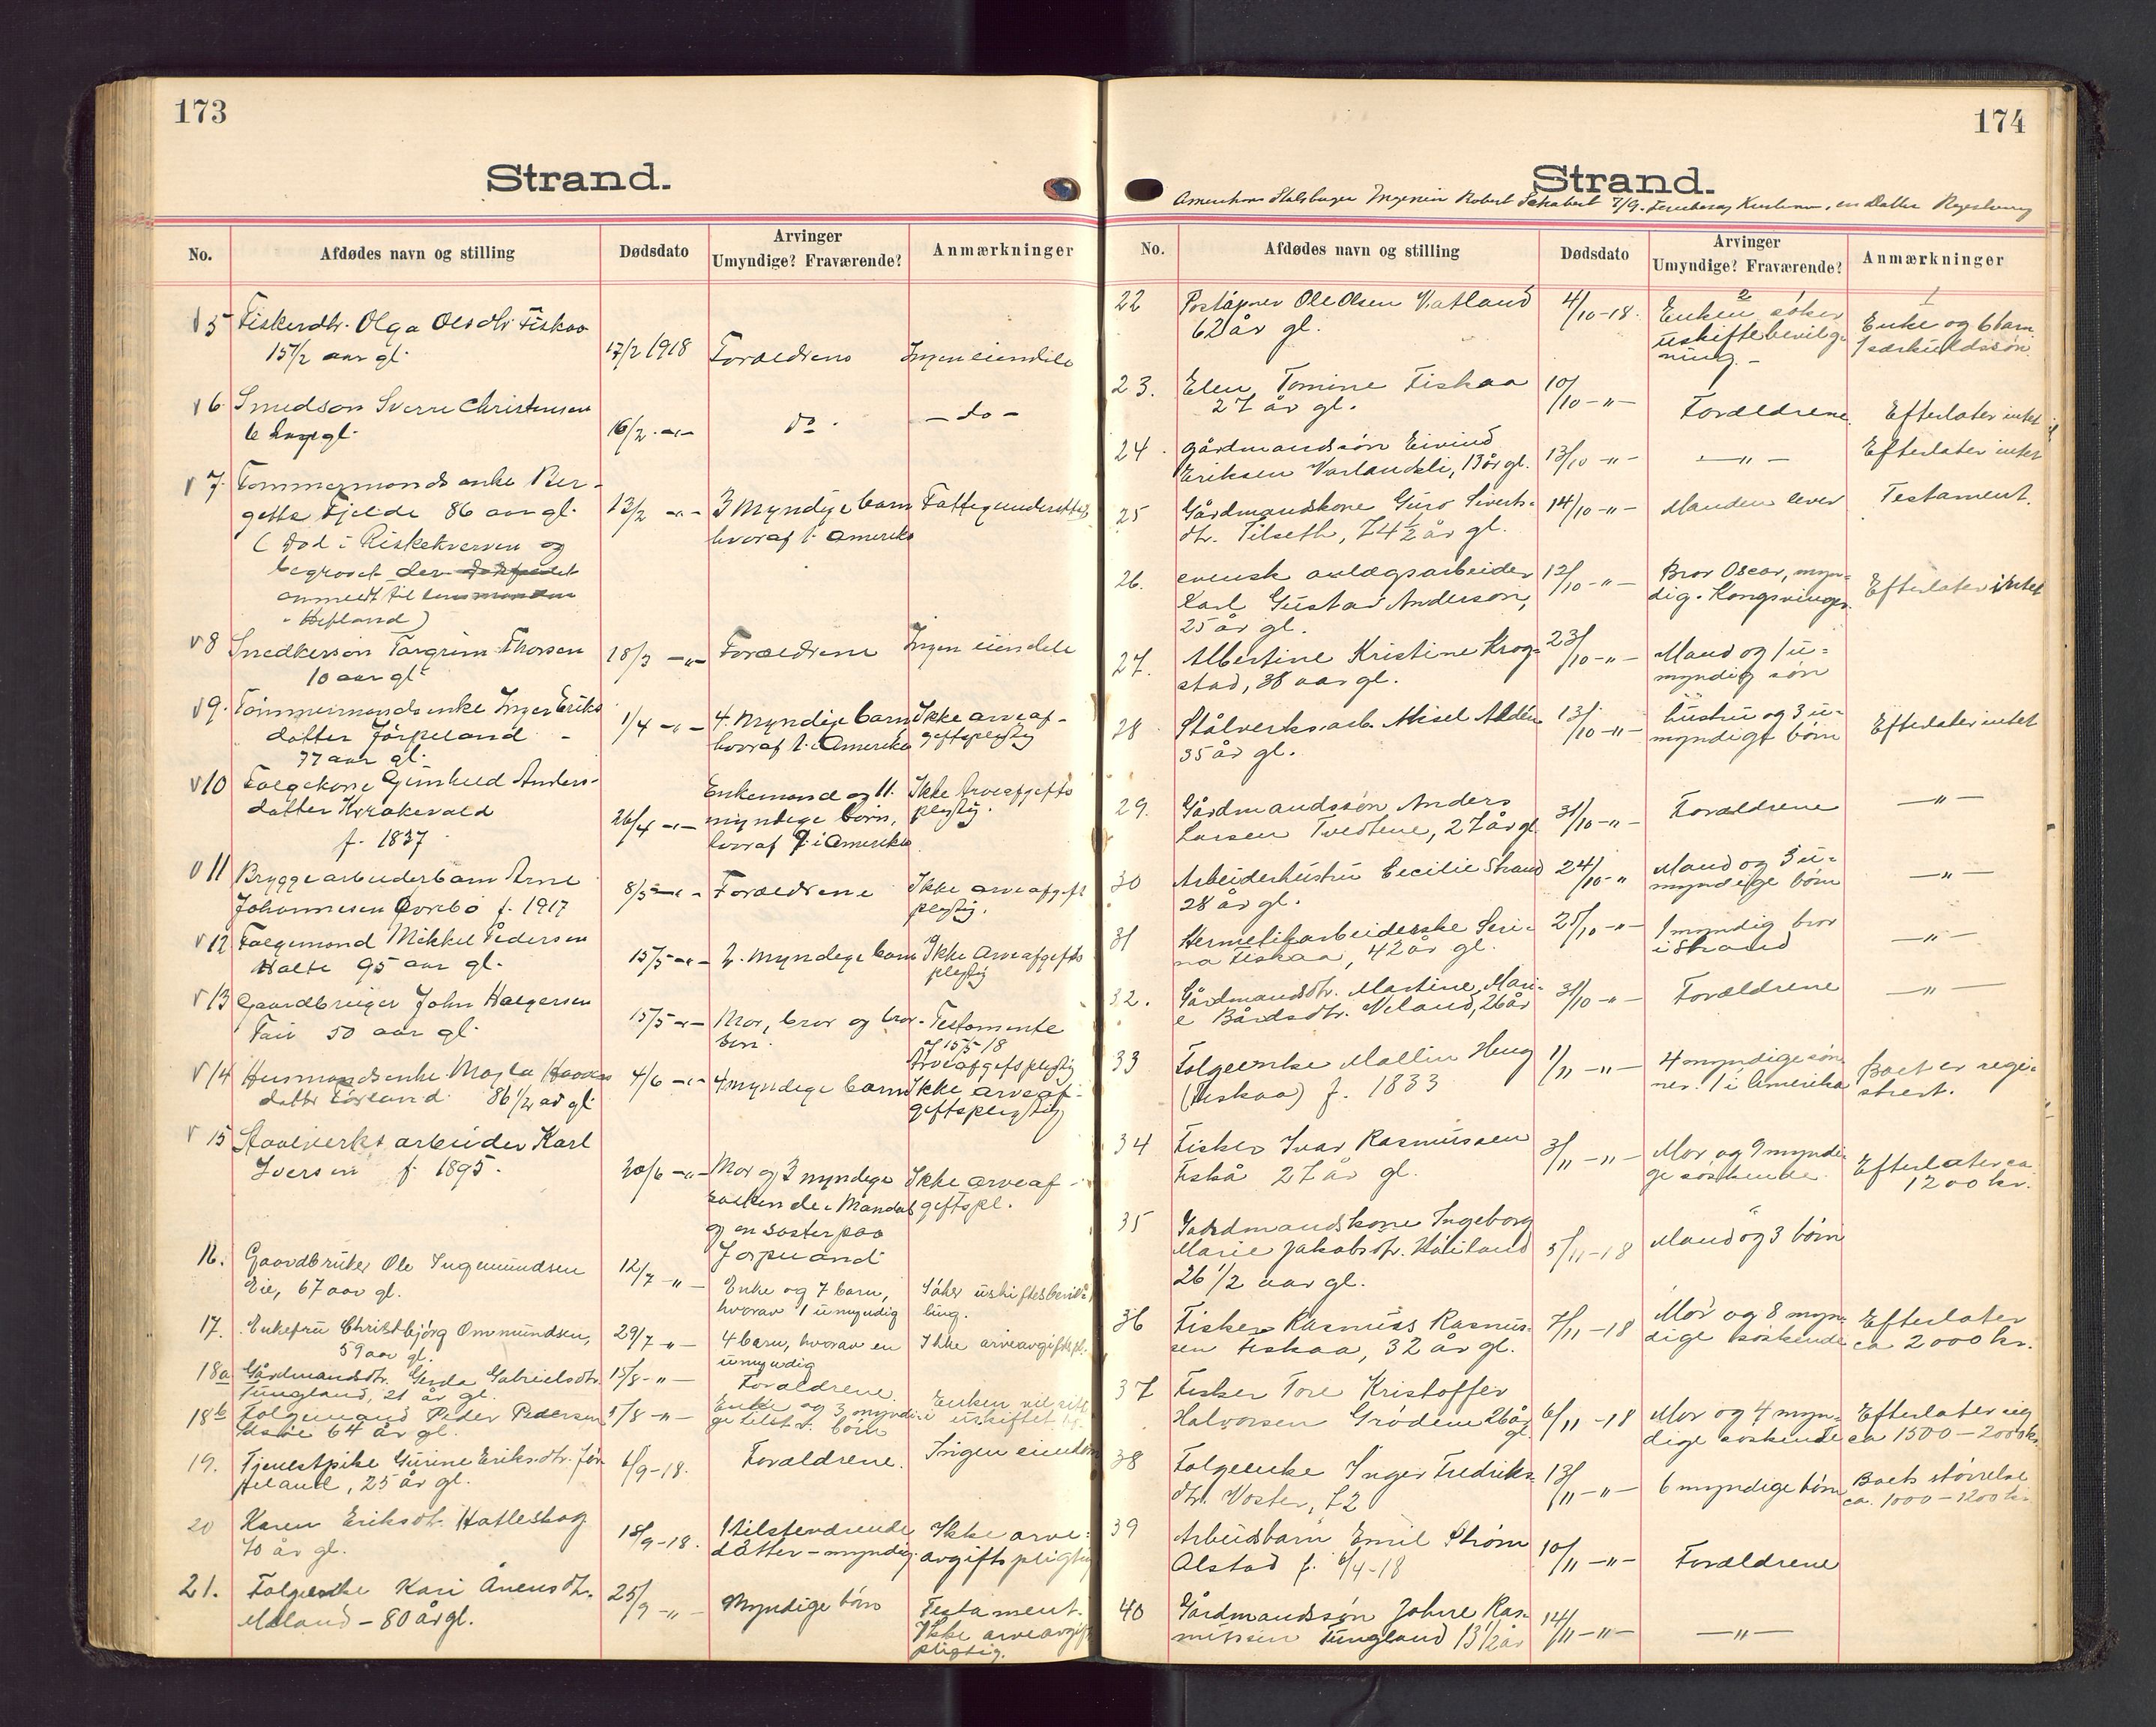 173
Strand.
No. Afdødes navn og stilling Dødsdato Arvinger Umyndige? Fraværende? Anmærkninger
5 Fiskerdtr. Olga Olsdtr Fiskaa
15 1/2 aar gl. 17/2 1918 Forældrene Ingen eiendele
6 Smedsøn Sverre Christensen
gl. 16/2 -"- do. - do -
7 Tømmermands enke Ber-
gette Fjelde 86 aar gl. 13/2 -"- 3 Myndige barn Fattigunderstøttet
hvoraf 1 i Amerika
(Død i Riskekverven og
begravet der
anmeldt til
i Hetland)
8 Snedkersøn Torgrim Thorsen 18/3 -"- Forældrene Ingen eiendele
10 aar gl.
9. Tømmermands enke Inger Eriks
datter Jørpeland 1/4 -"- 4 Myndige barn Ikke arveaf-
77 aar gl. hvoraf 1 i Amerika giftspligtig
10 Følgekone Gunhild Anders-
datter Krakevold 26/4 -"- Enkemand og 11 Ikke Arveafgifts
f. 1837 myndige børn, pligtig.
hvoraf 9 i Amerika
11 Bryggearbeiderbarn Arne
Johannesen Øvrebø f. 1917 8/5 -"- Forældrene Ikke arveafgift
pligtig.
12 Følgemand Mikkel Pedersen
Holte 95 aar gl. 15/5 -"- 2 Myndige barn Ikke Arveafgifts
pligtig
13 Gaardbruger John Halgersen
50 aar gl. 15/5 -"- Mor, bror og bror- Testamente
børn. af 15/5 18
Arveafgiftspligtig
14 Husmandsenke Magla
datter 86 1/2 aar gl. 4/6 -"- 4 myndige barn Ikke arveaf-
giftspligtig
15 Staalverks arbeider Karl
Iversen f. 1895. 20/6 -"- Mor og 3 myndige Ikke arveaf-
søskende i Mandal giftspl.
og en søster paa
Jørpeland
16. Gaardbruker Ole Ingemundsen
Eie, 67 aar gl. 12/7 -"- Enke og 7 barn, Søker uskiftesbevil-
hvorav 1 umyndig ling.
17. Enkefru Christbjørg Ommundsen,
59 aar gl. 29/7 -"- 4 barn, hvorav en Ikke arveavgiftspl.
umyndig
18a Gårdmandsdtr. Gerda Gabrielsdtr.
Tungland, 21 år gl. 15/8 -"- Forældrene.
18b Følgemand Peder Pedersen
64 år gl. 5/8 -"- Enke og 3 myndi- Enken vil sitte
ge tilst. børn i uskiftet
19. Tjenestpike Gurine Eriksdtr. Jør-
peland, 25 år gl. 6/9-18. Forældrene. Ingen eiendom
20 Karen Eriksdtr. Hatleskog
70 år gl. 18/9-18. 1 tilstedeværende Ikke arve-
datter - myndig. avgiftspligtig
21. Følgeenke Kari Ånensdtr.
Meland - 80 år gl. 25/9 -"- Myndige børn Testament.
Ikke arveavgift
pligtig.
174
Strand.
Amerikansk Ingeniør Robert 7/9. en Datter
No. Afdødes navn og stilling Dødsdato Arvinger Umyndige? Fraværende? Anmærkninger
22 Poståpner Ole Olsen Vatland
62 år gl. 4/10-18. Enken søker Enke og 6 barn
uskiftebevilg- 1 særkuldssøn
ning.-
23. Elen Tomine Fiskaa
27 år gl. 10/10 -"- Forældrene. Efterlater intet
24. Gårdmandssøn Eivind
Eriksen Varlandsli, 13 år gl. 13/10 -"- -"- Efterlater intet
25 Gårdmandskone Guro Siverts-
dtr. Tilseth, 74 1/2 år gl. 14/10 -"- Manden lever Testament.
26. svensk anlægsarbeider
Karl Gustav Anderson, 12/10 -"- Bror Oscar, myn- Efterlater intet
25 år gl. dig. Kongsvinger
27. Albertine Kristine Krog-
stad, 38 aar gl. 23/10 -"- Mand og 1 u-
myndig søn
28 Stålverksarb. Aksel Aldén
35 år gl. 13/10 -"- hustru og 3 u- Efterlater intet
myndige børn
29. Gårdmandssøn Anders
Larsen Tvedtene, 27 år gl. 31/10 -"- Forældrene -"-
30 Arbeiderhustru Cecilie Strand
28 år gl. 24/10 -"- Mand og 3 u- -"-
myndige børn
31 Hermetikarbeiderske Seri-
na Fiskaa, 42 år gl. 25/10 -"- 1 myndig bror -"-
i Strand
32. Gårdmandsdtr. Martine Mari-
e Bårdsdtr. Meland, 26 år 31/10 -"- Forældrene -"-
33 Følgeenke Mallin Heng
(Fiskaa) f. 1833 1/11 -"- 4 myndige søn- Boet er regi-
ner. 1 i Amerika strert.
34 Fisker Ivar Rasmussen
Fiskå 27 år gl. 3/11 -"- Mor og 9 myndi- Efterlater ca.
ge søskende. 1200 kr.
35 Gårdmandskone Ingeborg
Marie Jakobsdtr. 5/11-18 Mand og 3 børn
26 1/2 aar gl.
36 Fisker Rasmus Rasmus-
sen Fiskaa, 32 år gl. 7/11-18 Mor og 8 myn- Efterlater
dige søskende ca 2000 kr.
37 Fisker Tore Kristoffer
Halvorsen Grødem 26 år gl. 6/11-18 Mor og 4 myn- Efterlater sig
dige søskende ca 1500-2000 kr.
38 Følgeenke Inger Fredriks-
dtr. Voster, 72 13/11 -"- 6 myndige børn Boets størrelse
ca. 1000-1200 kr.
39 Arbeidsbarn Emil Strøm
Alstad f. 6/4-18 10/11 -"- Forældrene
40 Gårdmandssøn Johne Ras-
mussen Tungland 13 1/2 år 14/11 -"- -"-